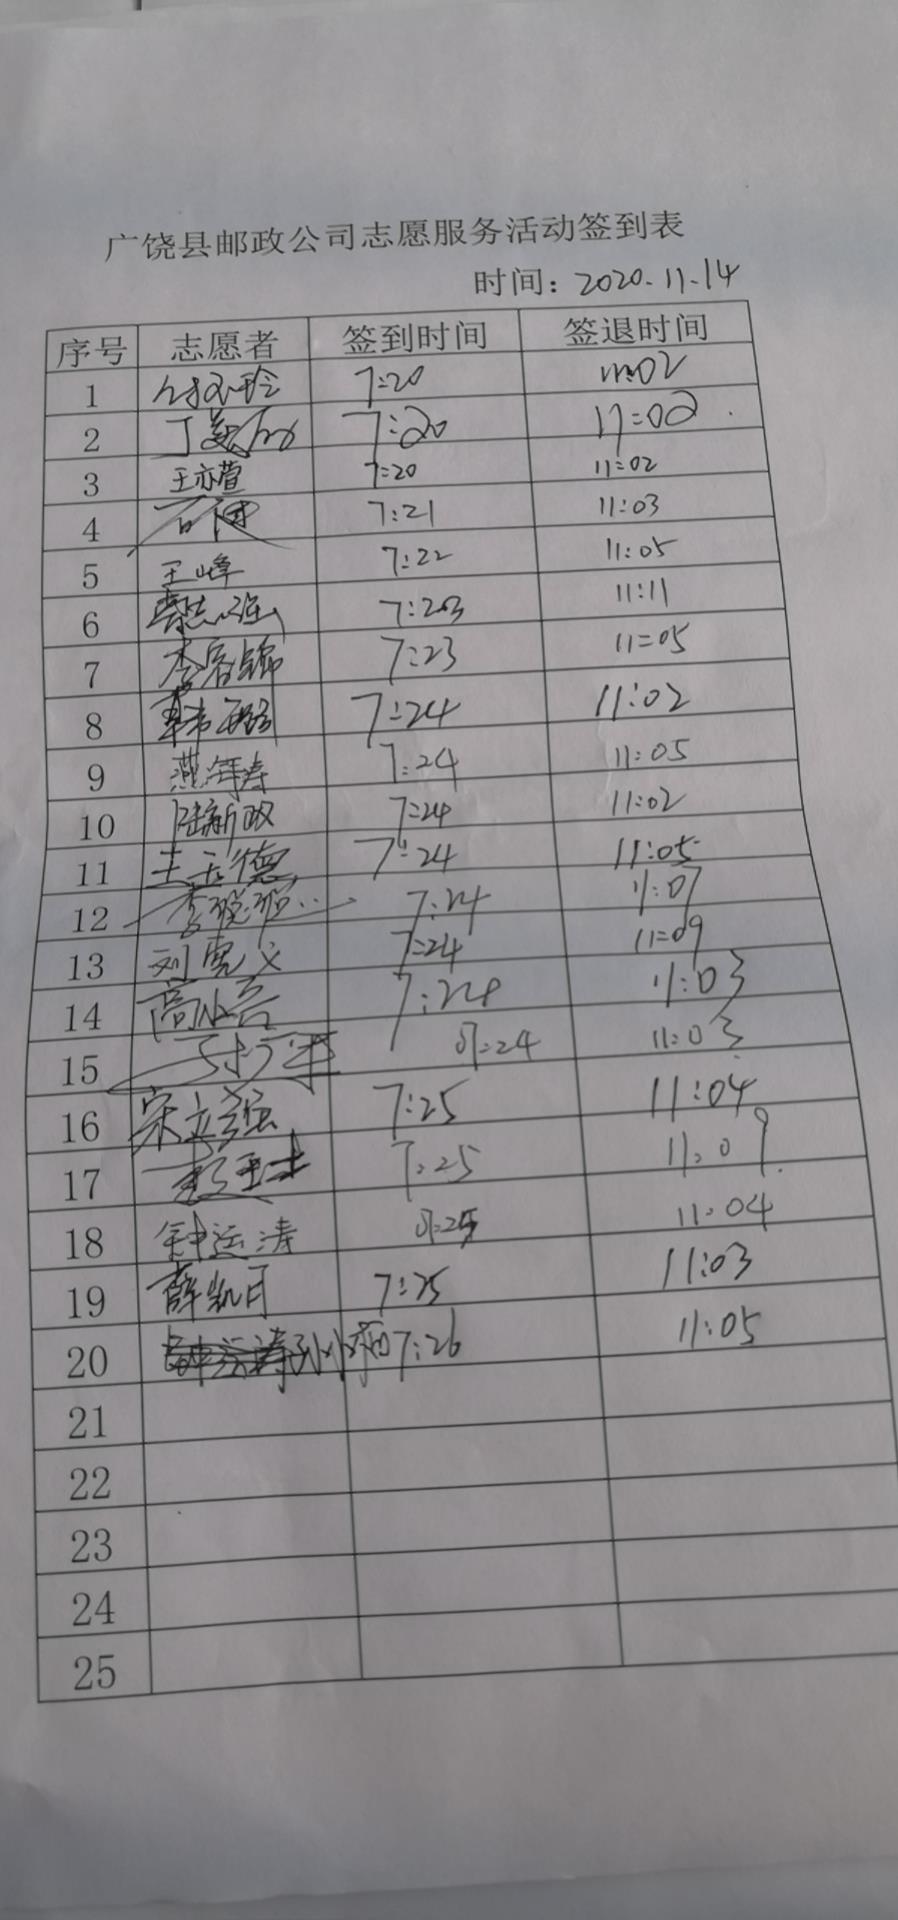 广饶县邮政公司志愿服务活动签到表
时间：2020.11.14
序号 志愿者 签到时间 签退时间
1 7:20 11:02
2 丁 7:20 11:02
3 王亦萱 7:20 11:02
4 7:21 11:03
5 王峰 7:22 11:05
6 志强 7:23 11:11
7 李 7:23 11:05
8 7:24 11:02
9 燕 涛 7:24 11:05
10 陆新政 7:24 11:02
11 王玉德 7:24 11:05
12 李 7:24 11:07
13 刘 义 7:24 11:09
14 高 7:24 11:03
15 7:24 11:03
16 宋 强 7:25 11:04
17 7:25 11:09
18 钟运涛 7:25 11:04
19 薛凯月 7:25 11:03
20 7:26 11:05
21
22
23
24
25